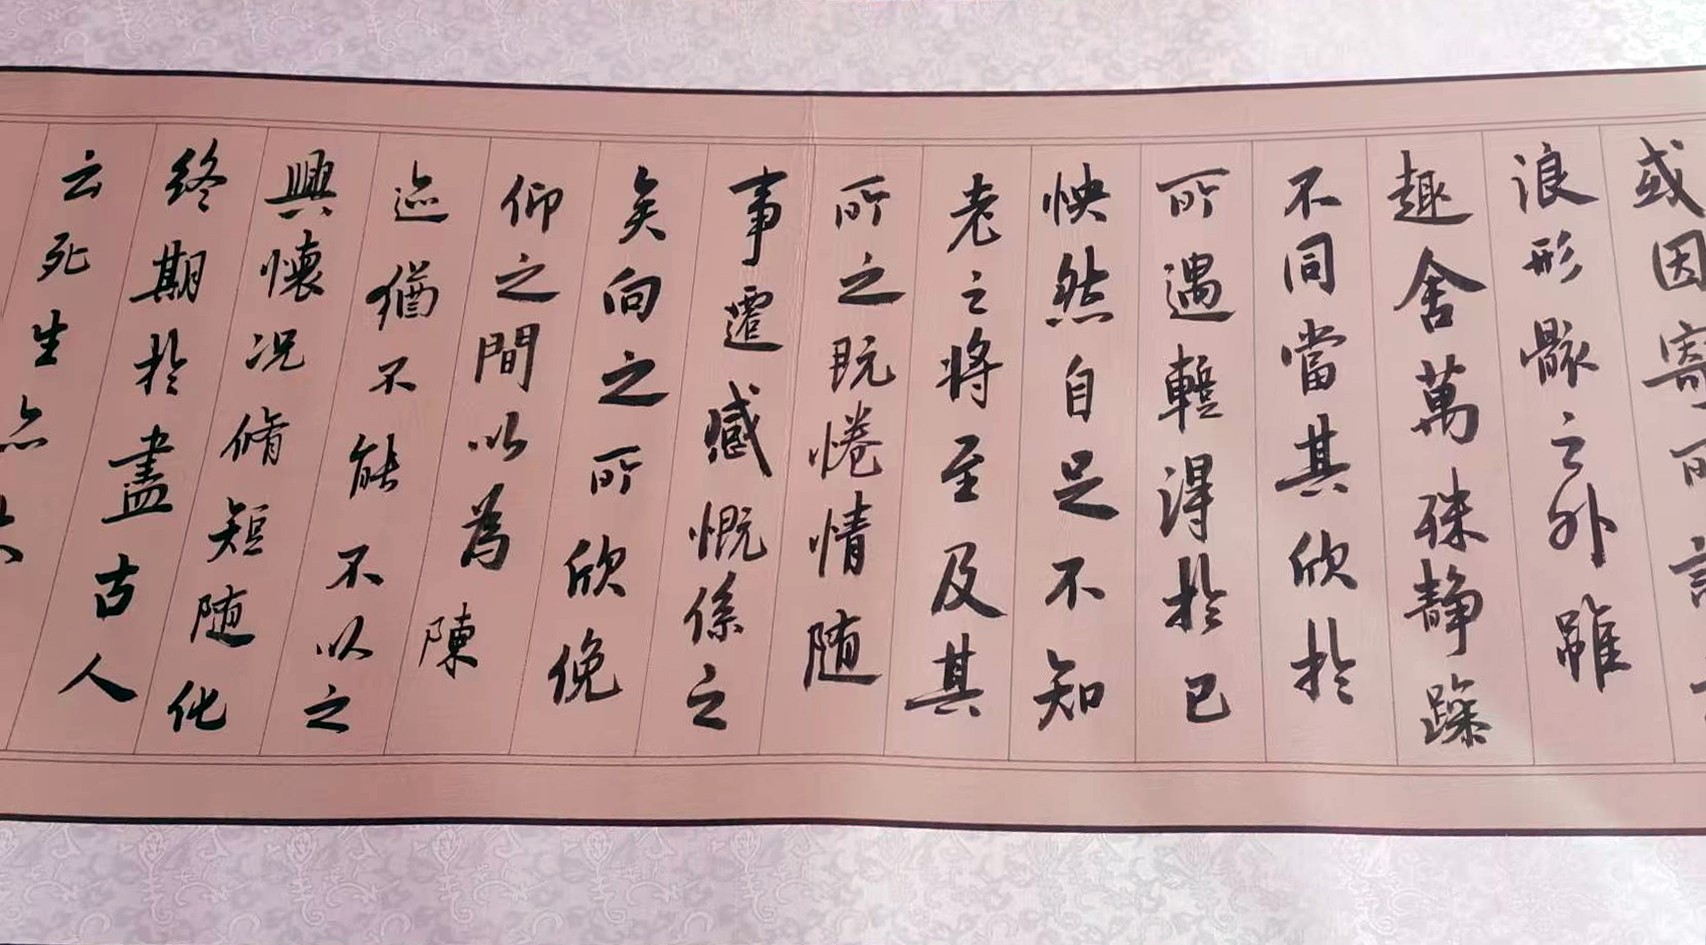 或因寄所託
浪形骸之外雖
趣舍萬殊静躁
不同當其欣於
所遇暫得於己
怏然自足不知
老之將至及其
所之既惓情随
事遷感慨係之
矣向之所欣俛
仰之間以為陳
迹猶不能不以之
興懷况脩短随化
終期於盡古人
云死生亦大